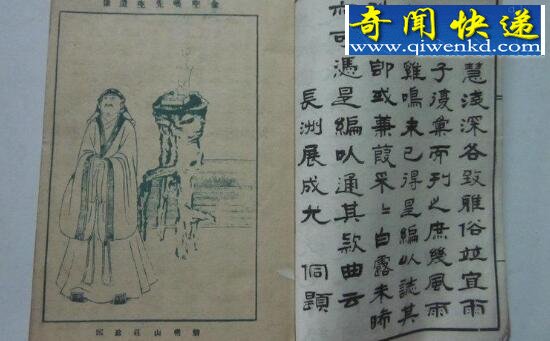 奇闻快递
www.qiwenkd.com
慧淺深各致雅俗竝宜雨
子復彙而列之庶幾風雨
雞鳴未已得是編以誌其
即或蒹葭采〻白露未晞
亦可憑是編以通其款曲云
長洲展成尤侗題
金聖嘆先生遺像
山莊